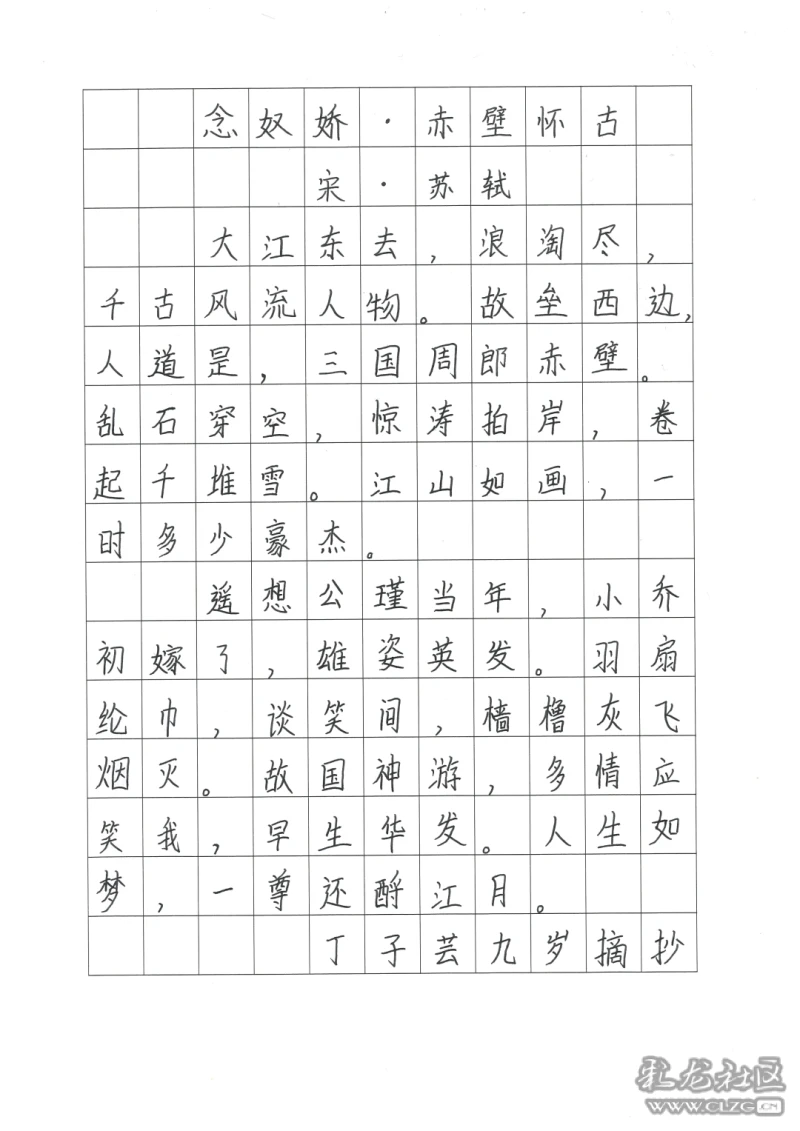 念奴娇·赤壁怀古
宋·苏轼
大江东去，浪淘尽，
千古风流人物。故垒西边，
人道是，三国周郎赤壁。
乱石穿空，惊涛拍岸，卷
起千堆雪。江山如画，一
时多少豪杰。
遥想公瑾当年，小乔
初嫁了，雄姿英发。羽扇
纶巾，谈笑间，樯橹灰飞
烟灭。故国神游，多情应
笑我，早生华发。人生如
梦，一尊还酹江月。
丁子芸九岁摘抄
乳龙社区
WWW.CLZG.CN